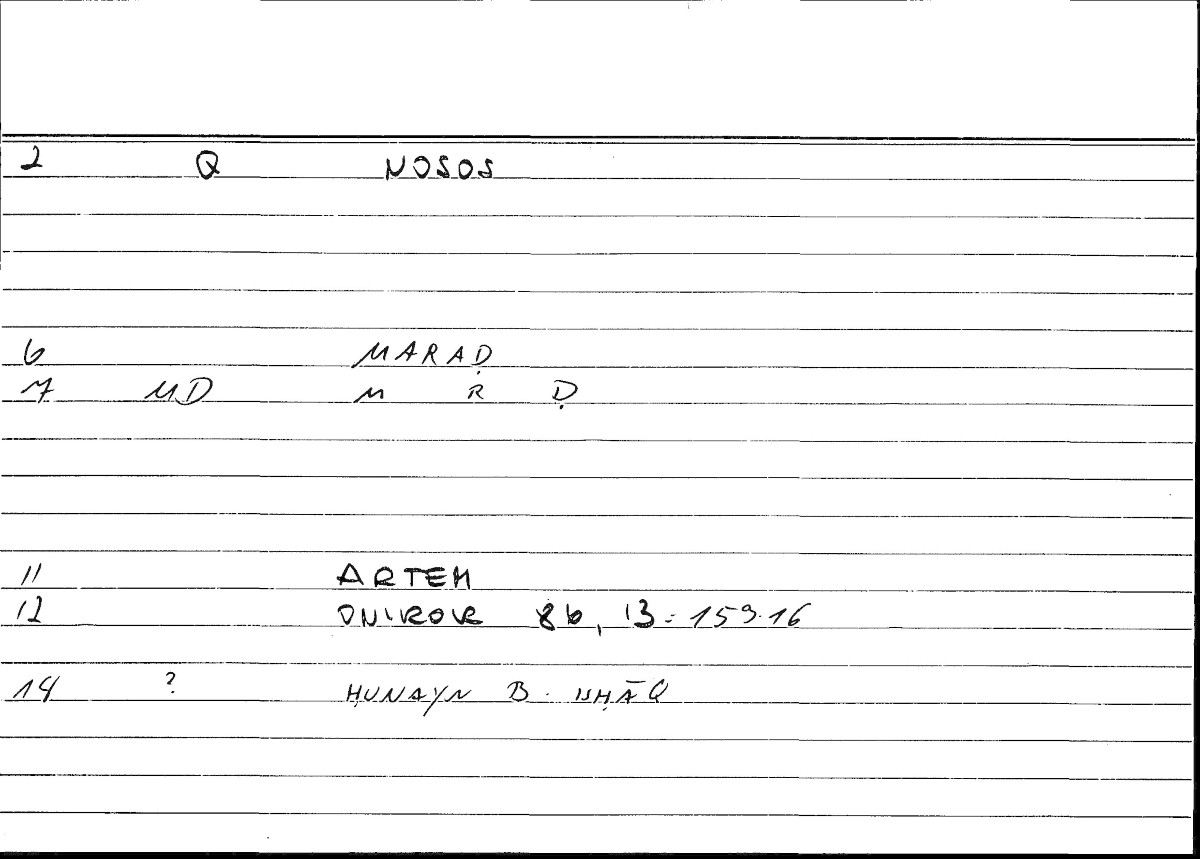 2 Q NOSOS
6 MARAḌ
7 MD M R Ḍ
11 ARTEM
12 ONIROK 86, 13 = 159.16
14 ? ḤUNAYN B. ISḤĀQ